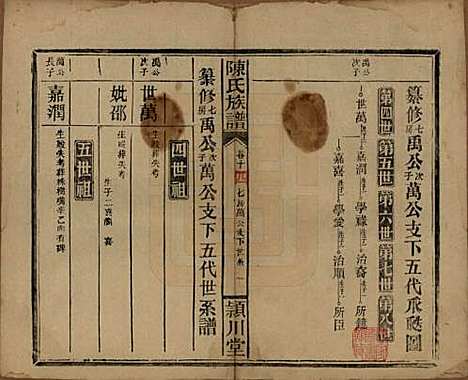 纂修七房禹公次子萬公支下五代爪瓞圖
第四世 第五世 第六世 第七世 第八世
世萬 嘉潤 學祿 治裔 所鐘
嘉喜 學愛 治順 所臣
陳氏族譜
卷十
七房萬公支下世系
一
潁川堂
纂修七房禹公次子萬公支下五代世系譜
四世祖
禹公次子 世萬
生歿葬失考
妣邵
生歿葬失考
生子二 嘉潤 喜
五世祖
萬公長子 嘉潤
生歿失考葬株樹嘴辛乙向有碑